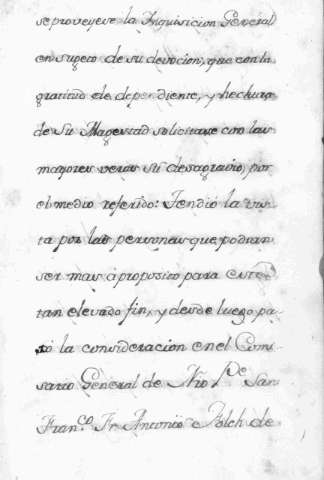 se proveyese la Inquisicion General
en sugeto de su devocion, que con la
gratitud de dependiente, y hechura
de Su Magestad solicitase con las
mayores veras su desagravio, por
el medio referido: Tendió la vis-
ta por las personas que podian
ser mas á proposito para este
tan elevado fin, y desde luego pa-
ró la consideracion en el Comi-
sario General de Nro Pe San
Franco Fr Antonio Folch de